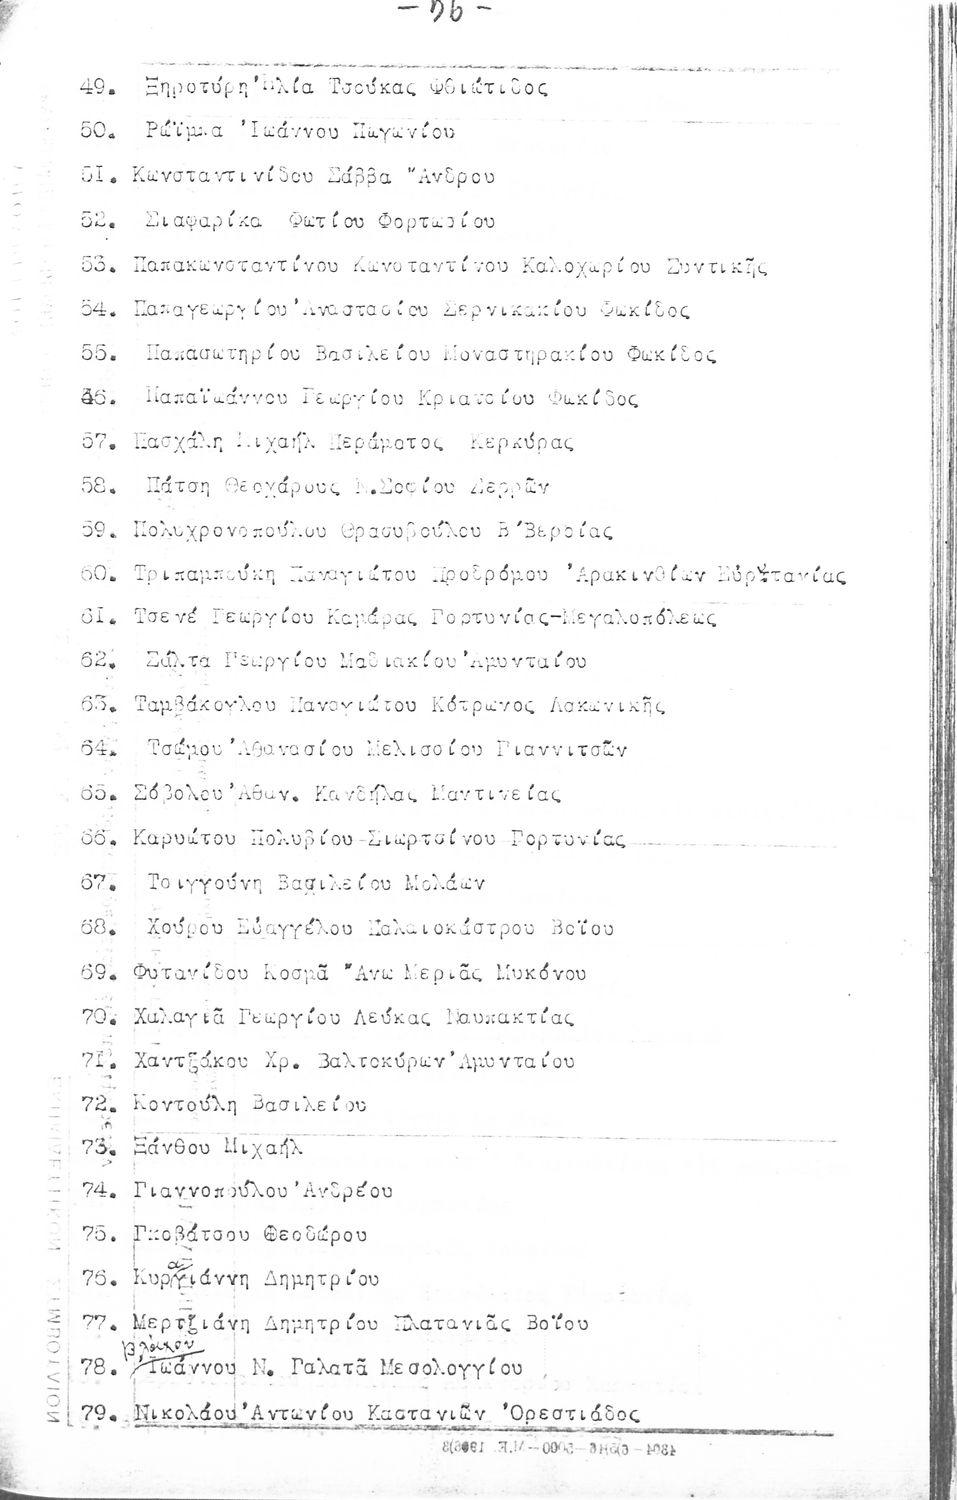 - 96 -
49. Ξηροτύρη Ἠλία Τσούκας Φθιώτιδος
50. Ρώϊμπα Ἰωάννου Παγωνίου
51. Κωνσταντινίδου Σάββα Ἄνδρου
52. Σιαφαρίκα Φωτίου Φορτωσίου
53. Παπακωνσταντίνου Κωνσταντίνου Καλοχωρίου Σιντικῆς
54. Παπαγεωργίου Ἀναστασίου Σερνικακίου Φωκίδος
55. Παπασωτηρίου Βασιλείου Μοναστηρακίου Φωκίδος
56. Παπαϊωάννου Γεωργίου Κριατσίου Φωκίδος
57. Πασχάλη Μιχαήλ Περάματος Κερκύρας
58. Πάτση Θεοχάρους Ν.Σοφίου Σερρῶν
59. Πολυχρονοπούλου Θρασυβούλου Β΄Βεροίας
60. Τριπαμπούκη Παναγιώτου Προδρόμου Ἀρακινθίων Εὐρυτανίας
61. Τσενέ Γεωργίου Καμάρας Γορτυνίας-Μεγαλοπόλεως
62. Σάλτα Γεωργίου Μαδιακίου Ἀμυνταίου
63. Ταμβάκογλου Παναγιώτου Κότρωνος Λακωνικῆς
64. Τσώμου Ἀθανασίου Μελισσίου Γιαννιτσῶν
65. Σόβολου Ἀθαν. Κανδήλας Μαντινείας
66. Καρυώτου Πολυβίου Σιωρτσίνου Γορτυνίας
67. Τσιγγούνη Βασιλείου Μολάων
68. Χούρου Εὐαγγέλου Παλαιοκάστρου Βοΐου
69. Φυτανίδου Κοσμᾶ Ἄνω Μεριᾶς Μυκόνου
70. Χαλαγιᾶ Γεωργίου Λεύκας Ναυπακτίας
71. Χαντζάκου Χρ. Βαλτοκύρων Ἀμυνταίου
72. Κοντούλη Βασιλείου
73. Ξάνθου Μιχαήλ
74. Γιαννοπούλου Ἀνδρέου
75. Γκοβάτσου Θεοδώρου
76. Κυργιάννη Δημητρίου
77. Μερτζιάνη Δημητρίου Πλατανιᾶς Βοΐου
Βλάχου
78. Ἰωάννου Ν. Γαλατᾶ Μεσολογγίου
79. Νικολάου Ἀντωνίου Καστανιῶν Ὀρεστιάδος